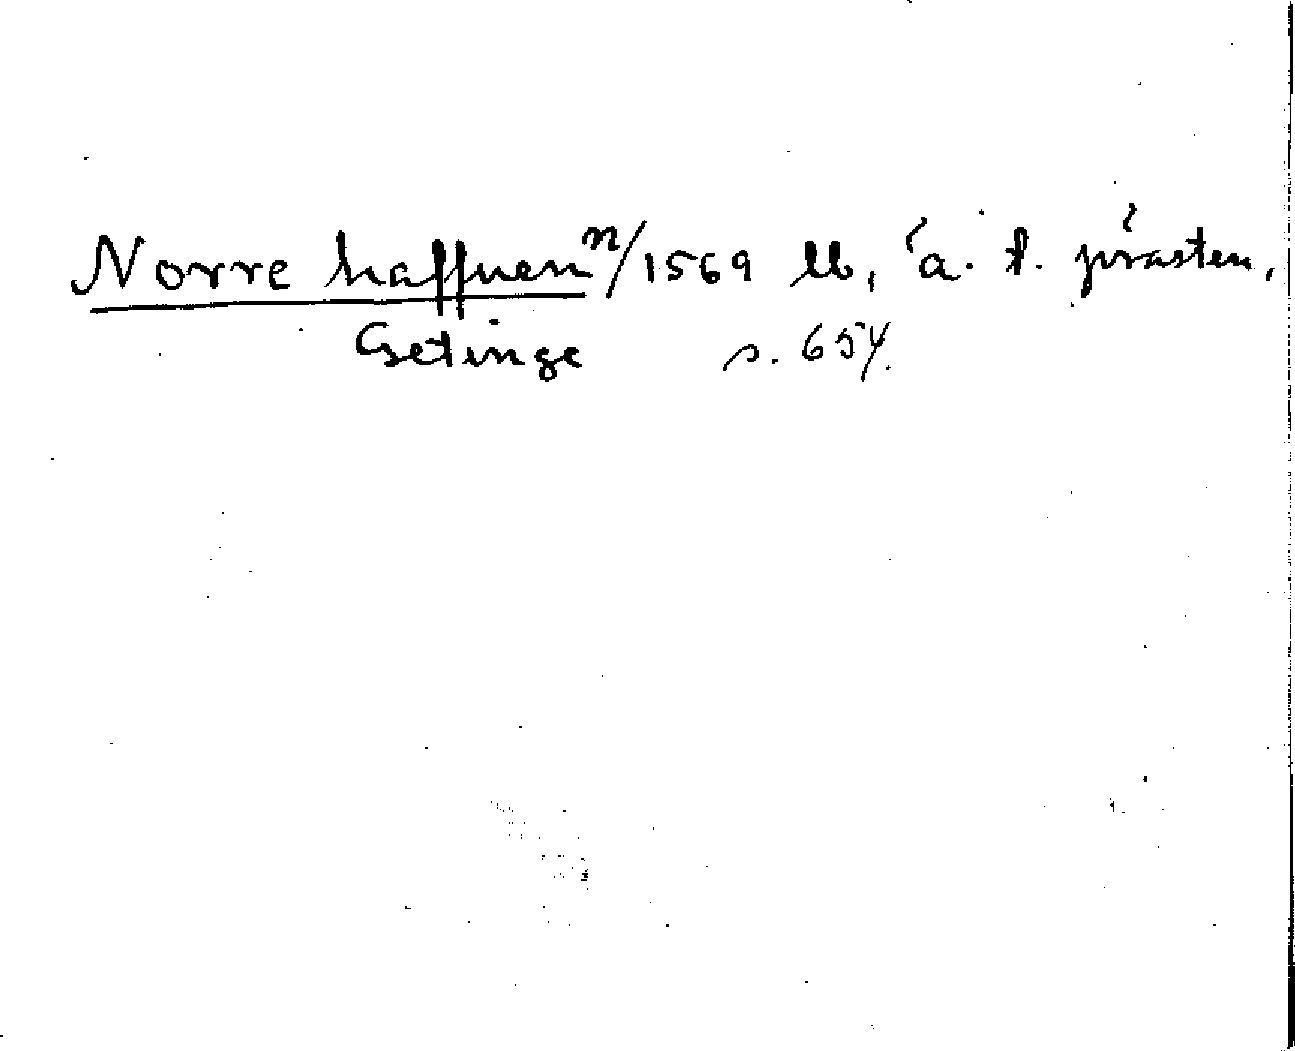 Norre haffuen n/1569 LLb, å. t. prästen,
Getinge s. 654.